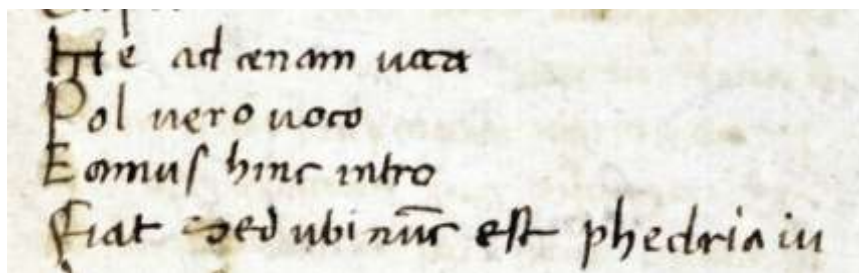 Me ad cenam uoca
Pol uero uoco
Eamus hinc intro
Fiat sed ubi nūc est phedria iu